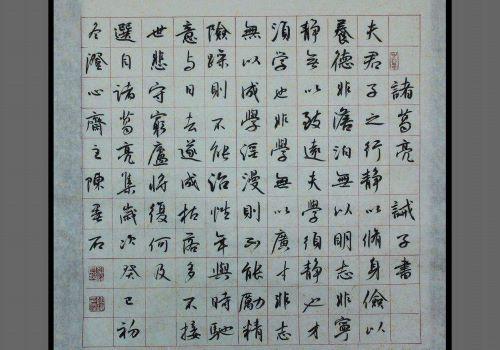 諸葛亮誡子書
夫君子之行靜以脩身儉以
養德非澹泊無以明志非寧
靜無以致遠夫學須靜也才
須學也非學無以廣才非志
無以成學淫漫則不能勵精
險躁則不能治性年與時馳
意与日去遂成枯落多不接
世悲守窮廬將復何及
選自諸葛亮集歲次癸巳初
冬澄心齋主陳石